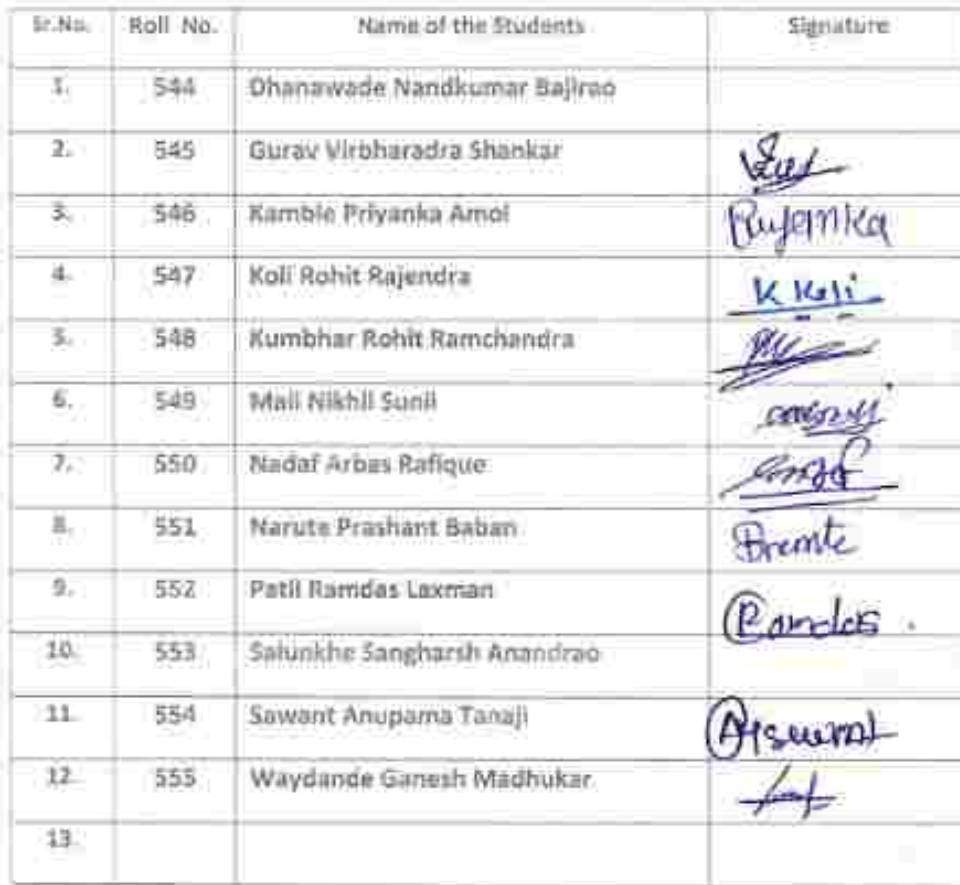 Sr.No. Roll No. Name of the Students Signature
1. 544 Dhanawade Nandkumar Bajirao
2. 545 Gurav Virbharadra Shankar
3. 546 Kamble Priyanka Amol
4. 547 Koli Rohit Rajendra K Koli
5. 548 Kumbhar Rohit Ramchandra
6. 549 Mali Nikhil Sunil
7. 550 Nadaf Arbas Rafique
8. 551 Narute Prashant Baban
9. 552 Patil Ramdas Laxman Ramdas.
10. 553 Salunkhe Sangharsh Anandrao
11. 554 Sawant Anupama Tanaji
12. 555 Waydande Ganesh Madhukar
13.